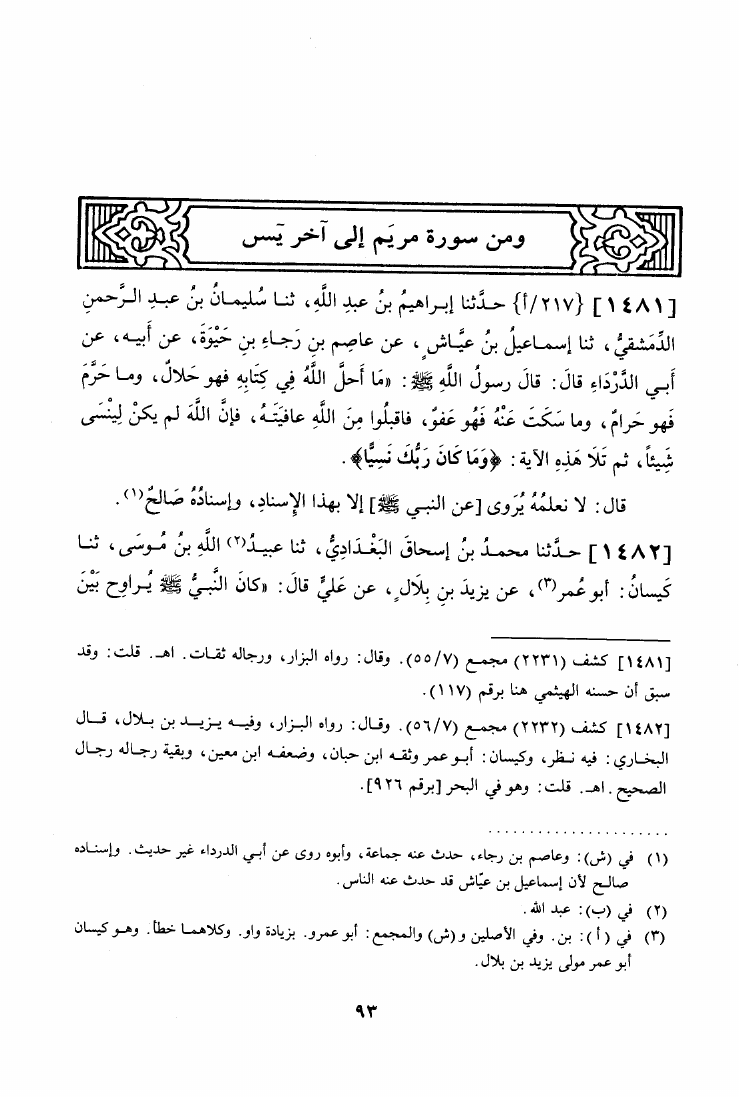 ومن سورة مريَم إلى آخر يٓسٓ
[١٤٨١] {٢١٧/أ} حدَّثنا إبراهيمُ بنُ عبدِ اللَّهِ، ثنا سُليمانُ بنُ عبدِ الرَّحمنِ
الدِّمَشقيُّ، ثنا إسماعيلُ بنُ عيَّاشٍ، عن عاصِمِ بنِ رَجاءِ بنِ حَيْوَةَ، عن أَبيه، عن
أَبي الدَّرْدَاءِ قالَ: قالَ رسولُ اللَّهِ ﷺ: «مَا أَحلَّ اللَّهُ فِي كِتَابِهِ فهو حَلالٌ، وما حَرَّمَ
فهو حَرامٌ، وما سَكَتَ عَنْهُ فَهُو عَفوٌ، فاقبلُوا مِنَ اللَّهِ عافيَتَهُ، فإنَّ اللَّهَ لم يكنْ لِيَنْسَى
شيئاً، ثم تَلَا هَذِهِ الآية: ﴿وَمَا كَانَ رَبُّكَ نَسِيًّا﴾.
قال: لا نعلمُهُ يُرَوى [عن النبي ﷺ] إلا بهذا الإِسنادِ، وإسنادُهُ صَالحٌ(١).
[١٤٨٢] حدَّثنا محمدُ بنُ إسحاقَ البَغْدَادِيُّ، ثنا عبيدُ(٢) اللَّهِ بنُ مُوسَى، ثنا
كَيسانُ: أبو عُمر(٣)، عن يزيدَ بنِ بِلَالٍ، عن عَليٍّ قالَ: «كانَ النَّبيُّ ﷺ يُراوِح بَيْنَ
[١٤٨١] كشف (٢٢٣١) مجمع (٧/٥٥). وقال: رواه البزار، ورجاله ثقات. اهـ. قلت: وقد
سبق أن حسنه الهيثمي هنا برقم (١١٧).
[١٤٨٢] كشف (٢٢٣٢) مجمع (٧/٥٦). وقال: رواه البزار، وفيه يزيد بن بلال، قال
البخاري: فيه نظر، وكيسان: أبو عمر وثقه ابن حبان، وضعفه ابن معين، وبقية رجاله رجال
الصحيح. اهـ. قلت: وهو في البحر [برقم ٩٢٦].
(١) في (ش): وعاصم بن رجاء، حدث عنه جماعة، وأبوه روى عن أبي الدرداء غير حديث. وإسناده
صالح لأن إسماعيل بن عيّاش قد حدث عنه الناس.
(٢) في (ب): عبد الله.
(٣) في (أ): بن. وفي الأصلين و(ش) والمجمع: أبو عمرو. بزيادة واو. وكلاهما خطأ. وهو كيسان
أبو عمر مولى يزيد بن بلال.
٩٣